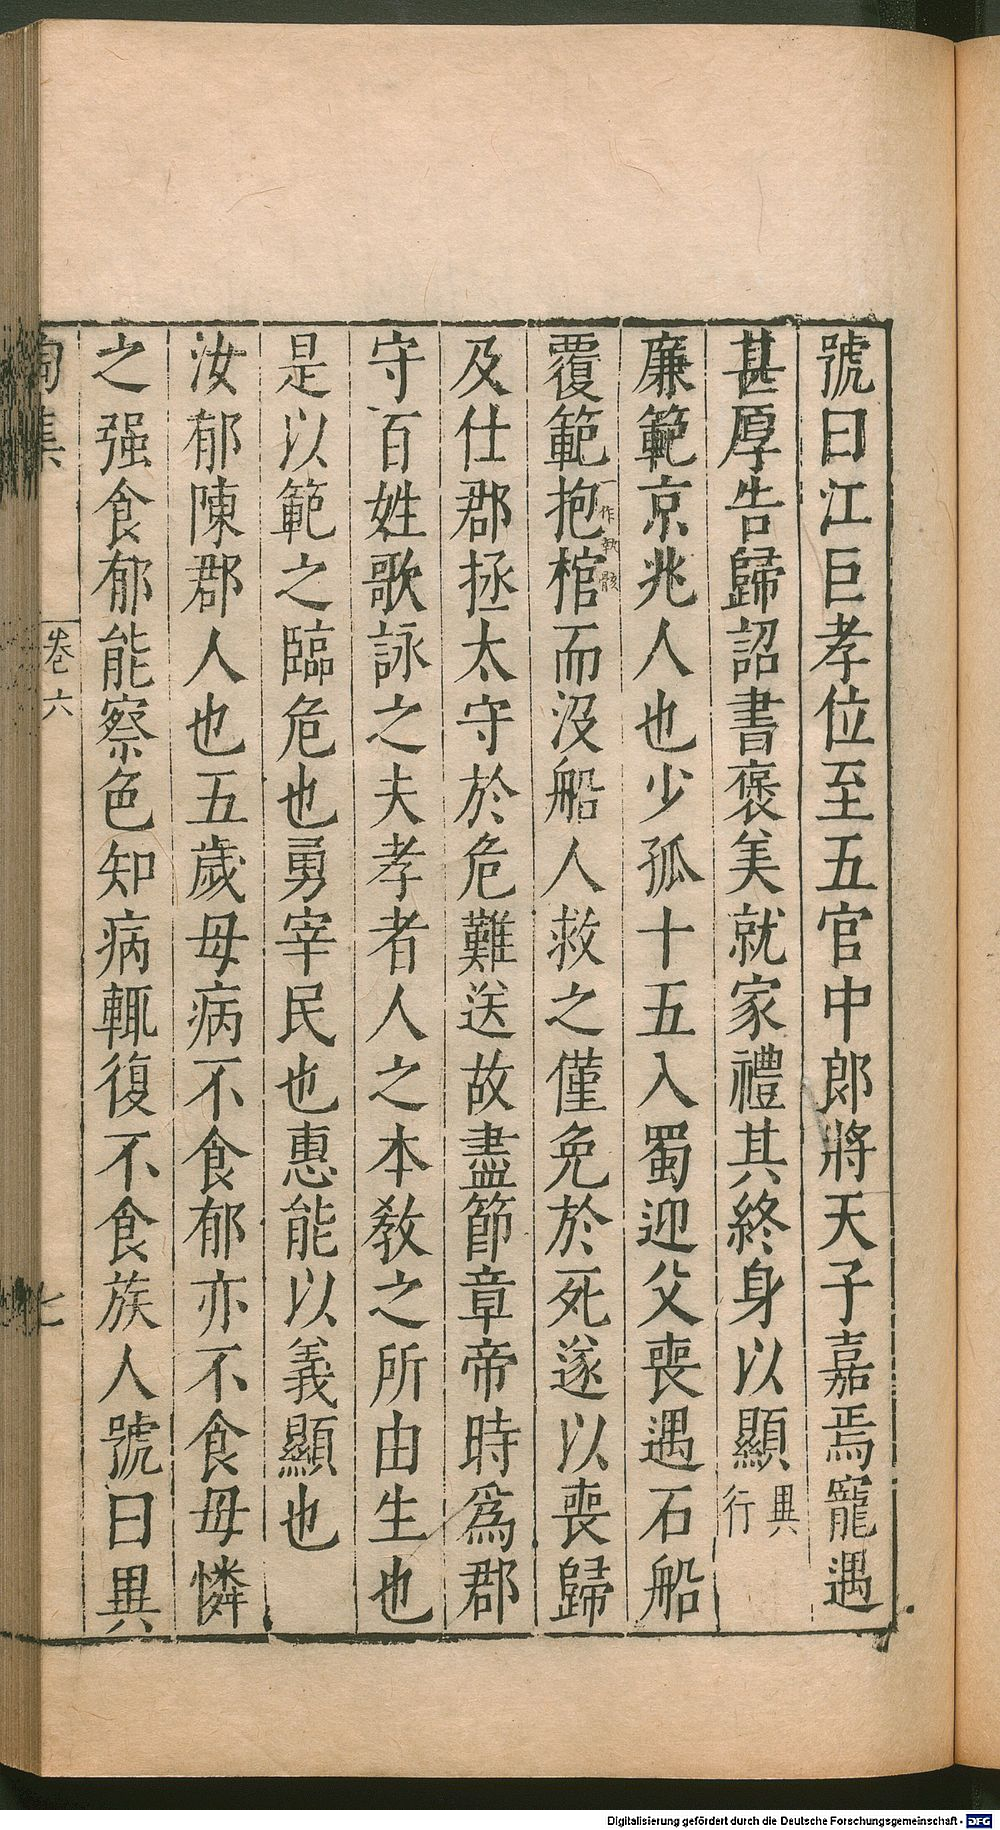 號曰江巨孝位至五官中郎將天子嘉焉寵遇
甚厚告歸詔書褒美就家禮其終身以顯異行
廉範京兆人也少孤十五入蜀迎父喪遇石船
覆範抱棺一作執骸而沒船人救之僅免於死遂以喪歸
及仕郡拯太守於危難送故盡節章帝時爲郡
守百姓歌詠之夫孝者人之本敎之所由生也
是以範之臨危也勇宰民也惠能以義顯也
汝郁陳郡人也五歲母病不食郁亦不食母憐
之强食郁能察色知病輒復不食族人號曰異
陶集 卷六 七
Digitalisierung gefördert durch die Deutsche Forschungsgemeinschaft - DFG